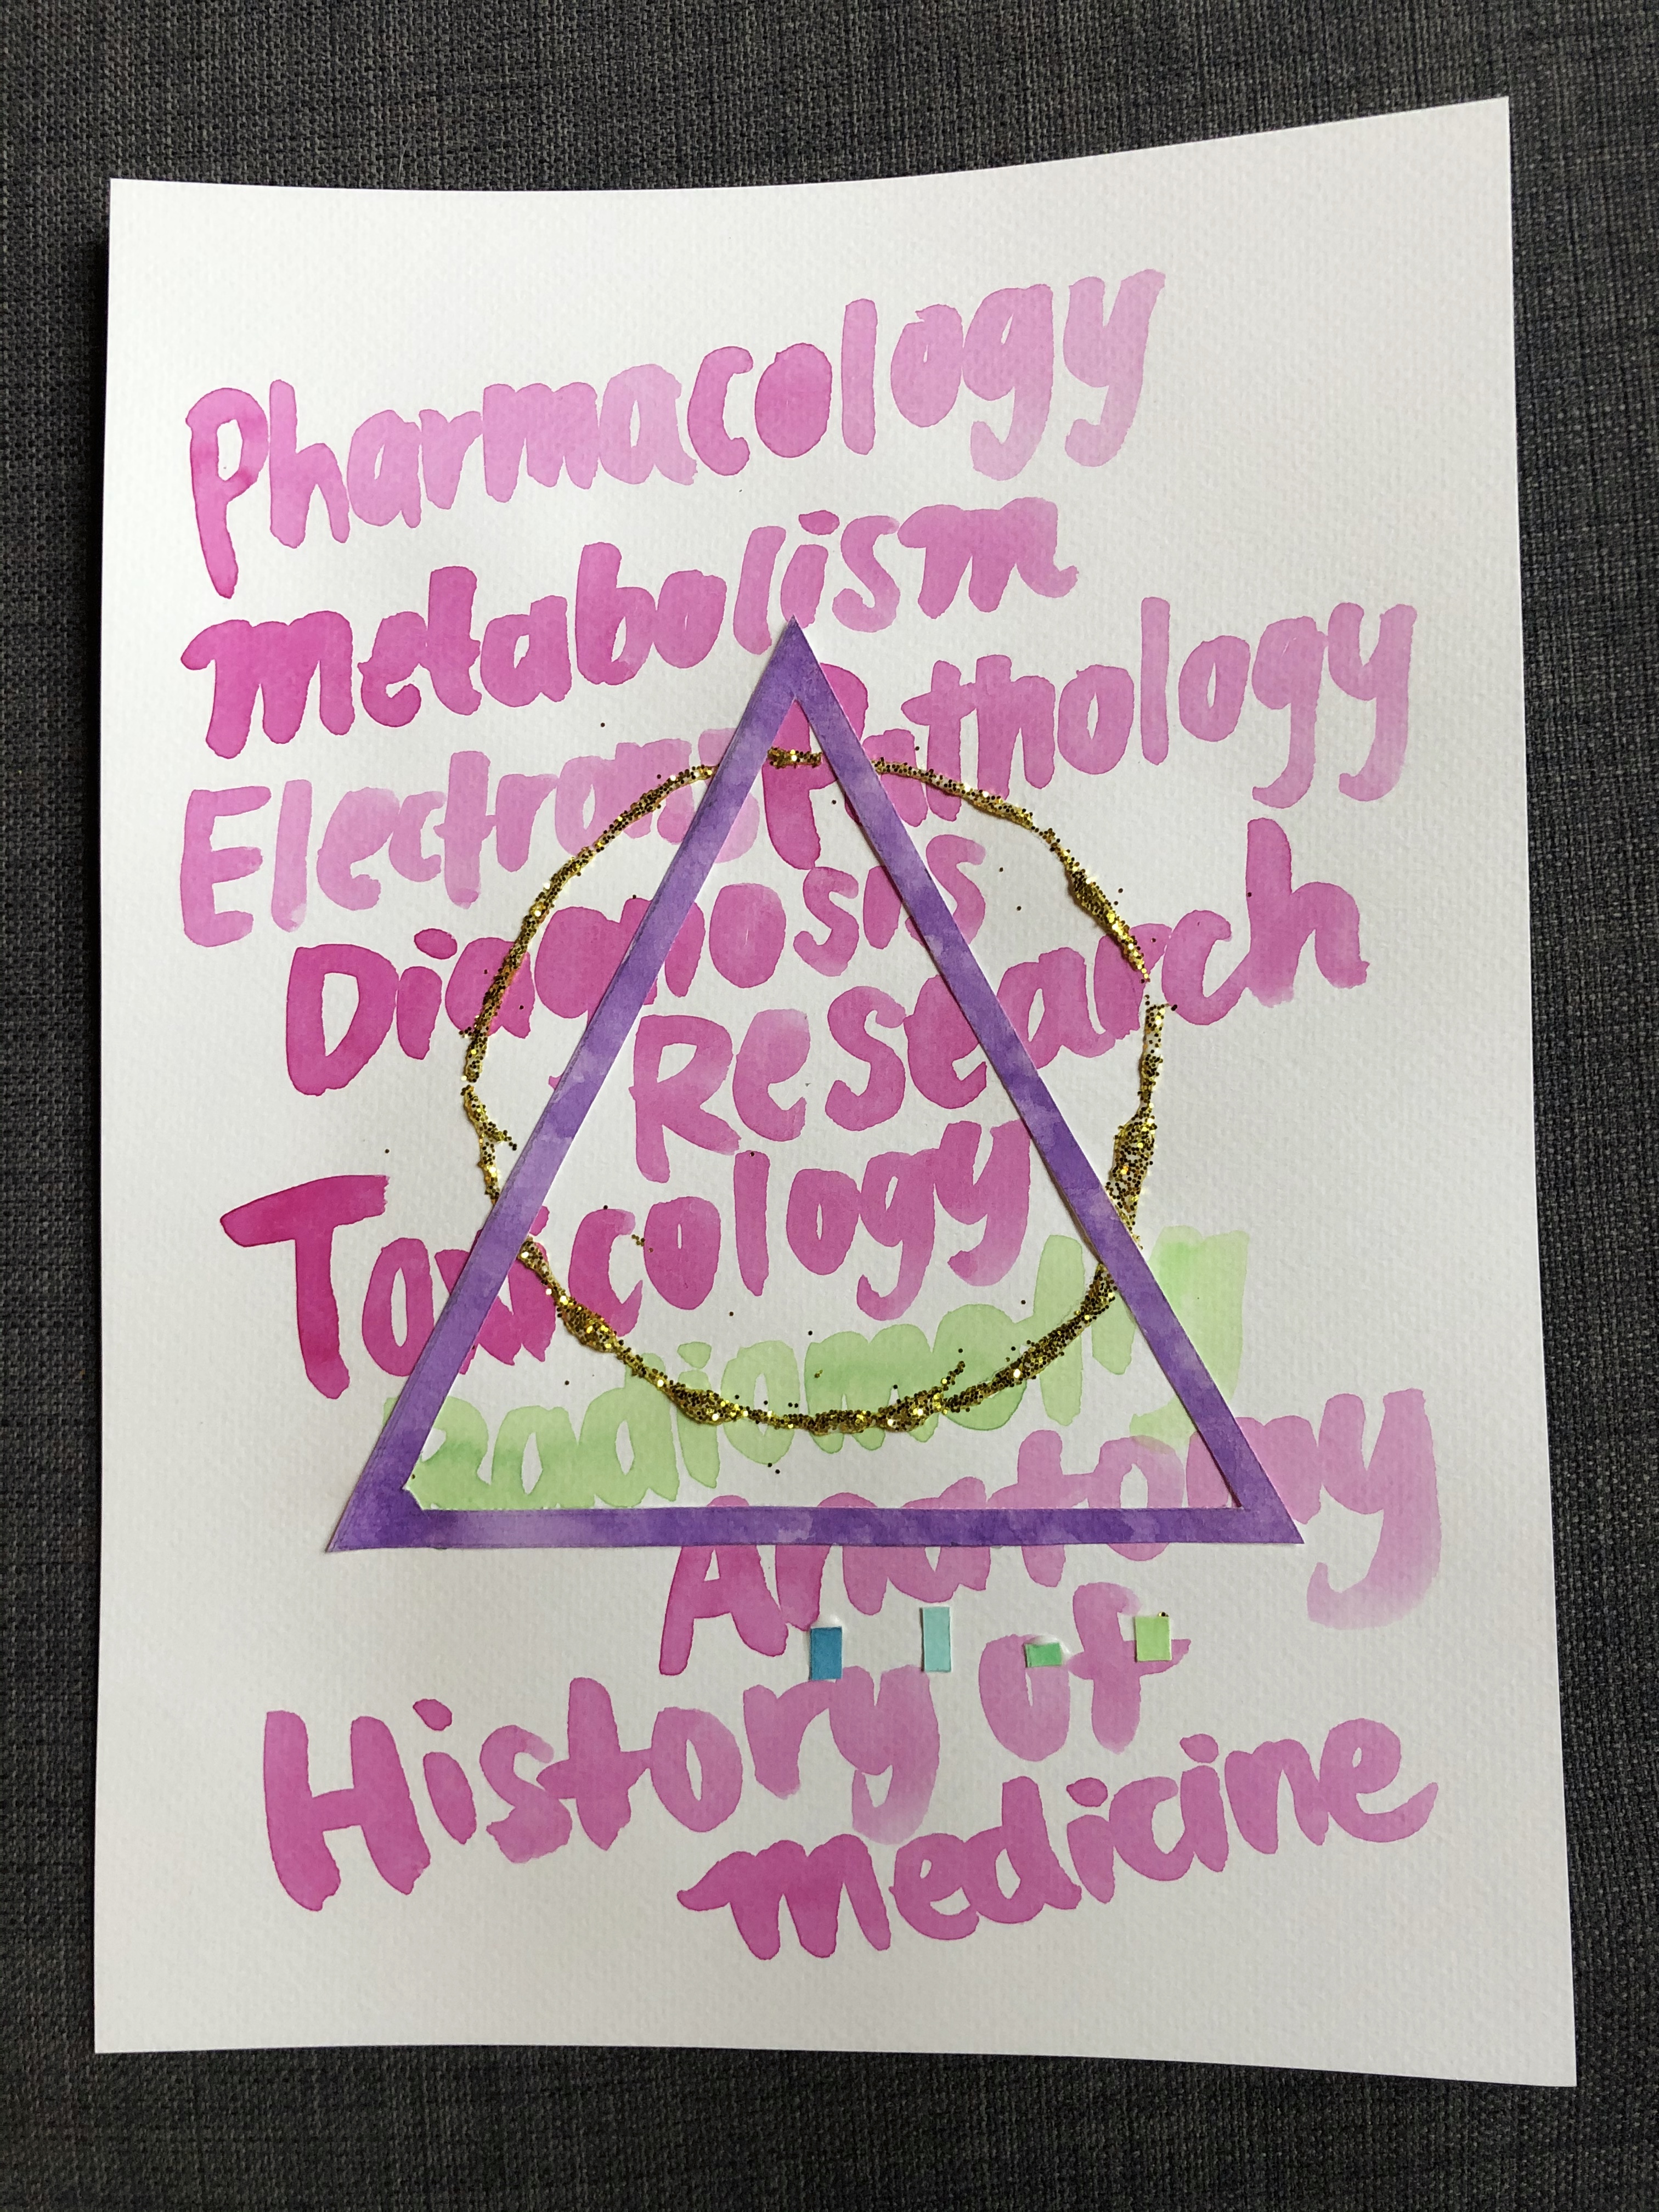 Pharmacology
metabolism
Pathology
Diagnosis
Research
Toxicology
Radiometry
Anatomy
History of
medicine